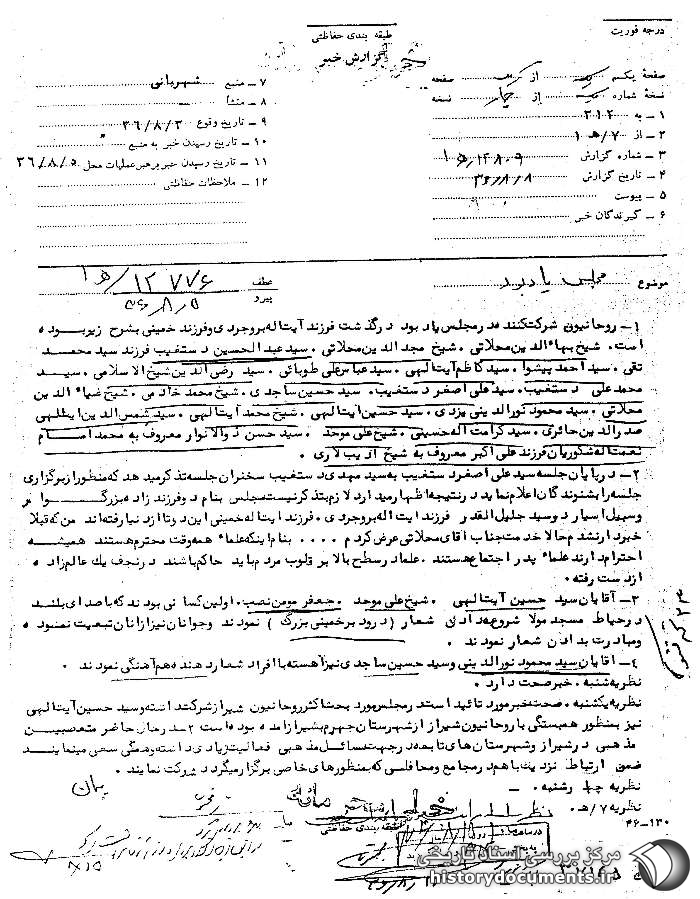 درجه فوریت
طبقه بندی حفاظتی
گزارش خبر
صفحهٔ یکم از یک صفحه
نسخهٔ شماره یک از چهار نسخه
۱ – به ۳۱۲
۲ – از ۷/ﻫ ۱
۳ – شماره گزارش
۴ – تاریخ گزارش ۳۶/۸/۸
۵ – پیوست
۶ – گیرندگان خبر
۷ – منبع شهربانی
۸ – منشأ
۹ – تاریخ وقوع ۳۶/۸/۳
۱۰ – تاریخ رسیدن خبر به منبع
۱۱ – تاریخ رسیدن خبر برهبر عملیات محل ۳۶/۸/۵
۱۲ – ملاحظات حفاظتی
موضوع مجلس یادبود
عطف ۱۲۷۷۶/ﻫ ۱
پیرو ۳۶/۸/۵
۱– روحانیون شرکت کننده در مجلس یاد بود درگذشت فرزند آیت اله بروجردی و فرزند خمینی بشرح زیر بوده
است . شیخ بهاء الدین محلاتی . شیخ مجد الدین محلاتی . سید عبد الحسین دستغیب فرزند سید محمد
تقی . سید احمد پیشوا . سید کاظم آیت الهی . سید عباس علی طوبائی . سید رضی الدین شیخ الاسلامی . سید
محمد علی دستغیب . سید علی اصغر دستغیب . سید حسین ساجدی . شیخ محمد خادمی . شیخ ضیاء الدین
محلاتی . سید محمود نورالدینی یزدی . سید حسین آیت الهی . شیخ محمد آیت الهی . سید شمس الدین آیت الهی
صدرالدین حائری . سید کرامت اله حسینی . شیخ علی موحد . سید حسن ذوالانوار معروف به محمد امام
نعمت اله شکوریان فرزند علی اکبر معروف به شیخ ادیب لاری .
۲– در پایان جلسه سید علی اصغر دستغیب به سید مهدی دستغیب سخنران جلسه تذکر میدهد که منظور از برگزاری
جلسه را بشنوندگان اعلام نماید در نتیجه اظهار میدارد لازم بتذکر نیست مجلس بنام دو فرزند زاده بزرگوار
و سید جلیل القدر فرزند آیت اله بروجردی . فرزند آیت اله خمینی این دو تا از دنیا رفته اند من که قبلا
خبردار نشدم حالا خدمت جناب آقای محلاتی عرض کردم .... بنام اینکه علماء همه وقت محترم هستند همیشه
احترام دارند علماء پدر اجتماع هستند . علما در سطح بالا بر قلوب مردم باید حاکم باشند در نجف یک عالم زاده
از دست رفته .
۳– آقایان سید حسین آیت الهی . شیخ علی موحد . جعفر مومن نصب . اولین کسانی بودند که با صدای بلند
در حیاط مسجد مولا شروع به دادن شعار ( درود بر خمینی بزرگ ) نمودند و جوانان نیز از آنان تبعیت نموده
و مبادرت بدادن شعار نمودند .
۴– آقایان سید محمود نورالدینی و سید حسین ساجدی نیز آهسته با افراد شعار دهنده هم آهنگی نمودند .
نظریه شنبه . خبر صحت دارد .
نظریه یکشنبه . صحت خبر مورد تائید است در مجلس مورد بحث اکثر روحانیون شیراز شرکت داشته و سید حسین آیت الهی
نیز بمنظور همبستگی با روحانیون شیراز از شهرستان جهرم بشیراز آمده بوده است ۲– در حال حاضر متعصبین
مذهبی در شیراز و شهرستان های تابعه در جهت مسائل مذهبی فعالیت زیادی داشته و همگی سعی مینمایند
ضمن ارتباط نزدیک با هم در مجامع و محافلی که بمنظورهای خاصی برگزار میگردد شرکت نمایند .
نظریه چهارشنبه . –
نظریه ۷/ﻫ .
طبقه بندی حفاظتی
۱۳۰–۴۶
مرکز بررسی اسناد تاریخی
historydocuments.ir